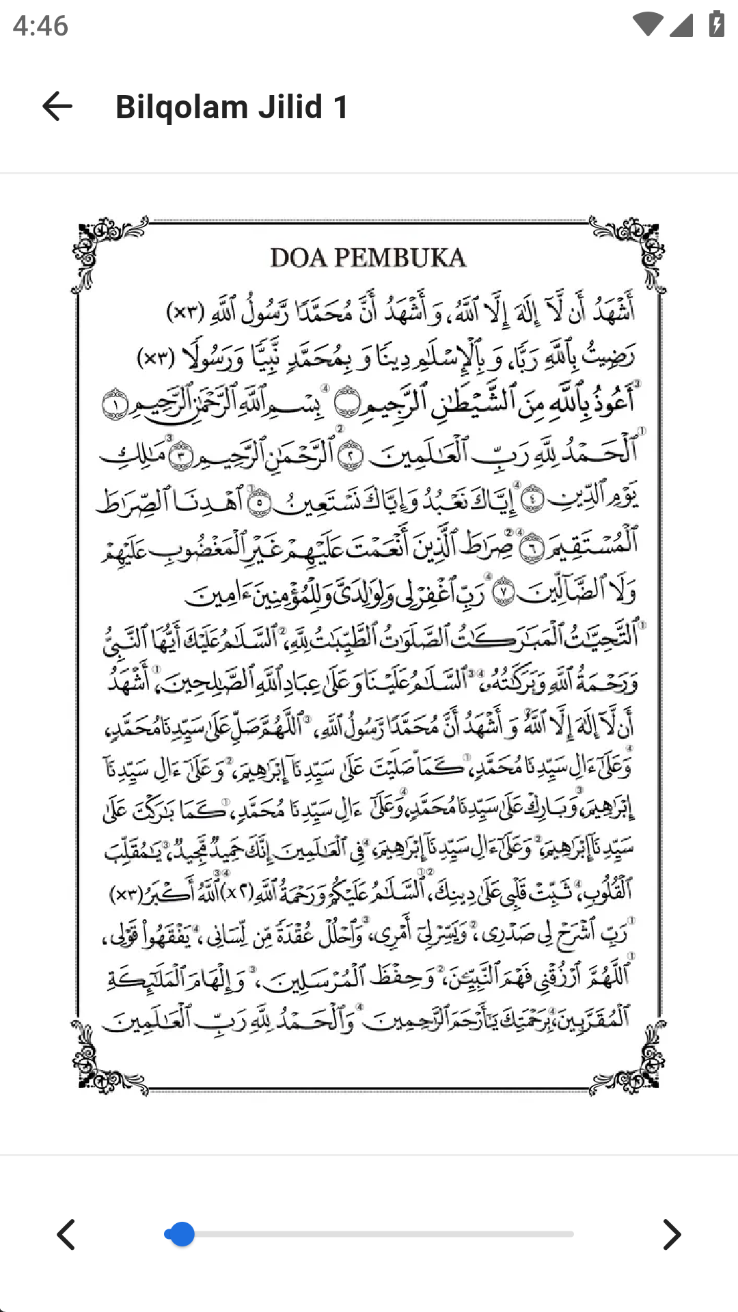 4:46
Bilqolam Jilid 1
DOA PEMBUKA
أَشْهَدُ أَن لَّآ إِلَهَ إِلَّا اللَّهُ، وَأَشْهَدُ أَنَّ مُحَمَّدًا رَّسُولُ اللَّهِ (٣×)
رَضِيتُ بِاللَّهِ رَبًّا، وَبِالْإِسْلَامِ دِينًا وَبِمُحَمَّدٍ نَّبِيًّا وَرَسُولًا (٣×)
٣أَعُوذُ بِاللَّهِ مِنَ الشَّيْطَٰنِ الرَّجِيمِ ۝ ٤بِسْمِ اللَّهِ الرَّحْمَٰنِ الرَّحِيمِ ١
١الْحَمْدُ لِلَّهِ رَبِّ الْعَٰلَمِينَ ٢ ٢الرَّحْمَٰنِ الرَّحِيمِ ٣ ٣مَٰلِكِ
يَوْمِ الدِّينِ ٤ ٤إِيَّاكَ نَعْبُدُ وَإِيَّاكَ نَسْتَعِينُ ٥ ١اهْدِنَا الصِّرَاطَ
الْمُسْتَقِيمَ ٦ ٢٤صِرَاطَ الَّذِينَ أَنْعَمْتَ عَلَيْهِمْ غَيْرِ الْمَغْضُوبِ عَلَيْهِمْ
وَلَا الضَّآلِّينَ ٧ ٤رَبِّ اغْفِرْ لِي وَلِوَالِدَيَّ وَلِلْمُؤْمِنِينَ ءَامِينَ
١التَّحِيَّاتُ الْمُبَارَكَاتُ الصَّلَوَاتُ الطَّيِّبَاتُ لِلَّهِ، ٢السَّلَامُ عَلَيْكَ أَيُّهَا النَّبِيُّ
وَرَحْمَةُ اللَّهِ وَبَرَكَاتُهُ، ٣٤السَّلَامُ عَلَيْنَا وَعَلَىٰ عِبَادِ اللَّهِ الصَّالِحِينَ، ١أَشْهَدُ
أَن لَّآ إِلَهَ إِلَّا اللَّهُ ٢وَأَشْهَدُ أَنَّ مُحَمَّدًا رَّسُولُ اللَّهِ، ٣اللَّهُمَّ صَلِّ عَلَىٰ سَيِّدِنَا مُحَمَّدٍ،
٤وَعَلَىٰٓ ءَالِ سَيِّدِنَا مُحَمَّدٍ، ١كَمَا صَلَّيْتَ عَلَىٰ سَيِّدِنَآ إِبْرَاهِيمَ، ٢وَعَلَىٰٓ ءَالِ سَيِّدِنَآ
إِبْرَاهِيمَ، ٣وَبَارِكْ عَلَىٰ سَيِّدِنَا مُحَمَّدٍ، ٤وَعَلَىٰٓ ءَالِ سَيِّدِنَا مُحَمَّدٍ، ١كَمَا بَارَكْتَ عَلَىٰ
سَيِّدِنَآ إِبْرَاهِيمَ، ٢وَعَلَىٰٓ ءَالِ سَيِّدِنَآ إِبْرَاهِيمَ، ٤فِي الْعَالَمِينَ إِنَّكَ حَمِيدٌ مَّجِيدٌ، ٣يَا مُقَلِّبَ
الْقُلُوبِ، ٤ثَبِّتْ قَلْبِي عَلَىٰ دِينِكَ، ١٢السَّلَامُ عَلَيْكُمْ وَرَحْمَةُ اللَّهِ (٢×) ٣٤اللَّهُ أَكْبَرُ (٣×)
١رَبِّ اشْرَحْ لِي صَدْرِي، ٢وَيَسِّرْ لِيٓ أَمْرِي، ٣وَاحْلُلْ عُقْدَةً مِّن لِّسَانِي، ٤يَفْقَهُواْ قَوْلِي،
١اللَّهُمَّ ارْزُقْنِي فَهْمَ النَّبِيِّينَ، ٢وَحِفْظَ الْمُرْسَلِينَ، ٣وَإِلْهَامَ الْمَلَآئِكَةِ
الْمُقَرَّبِينَ، ٤بِرَحْمَتِكَ يَآ أَرْحَمَ الرَّاحِمِينَ ٤وَالْحَمْدُ لِلَّهِ رَبِّ الْعَالَمِينَ